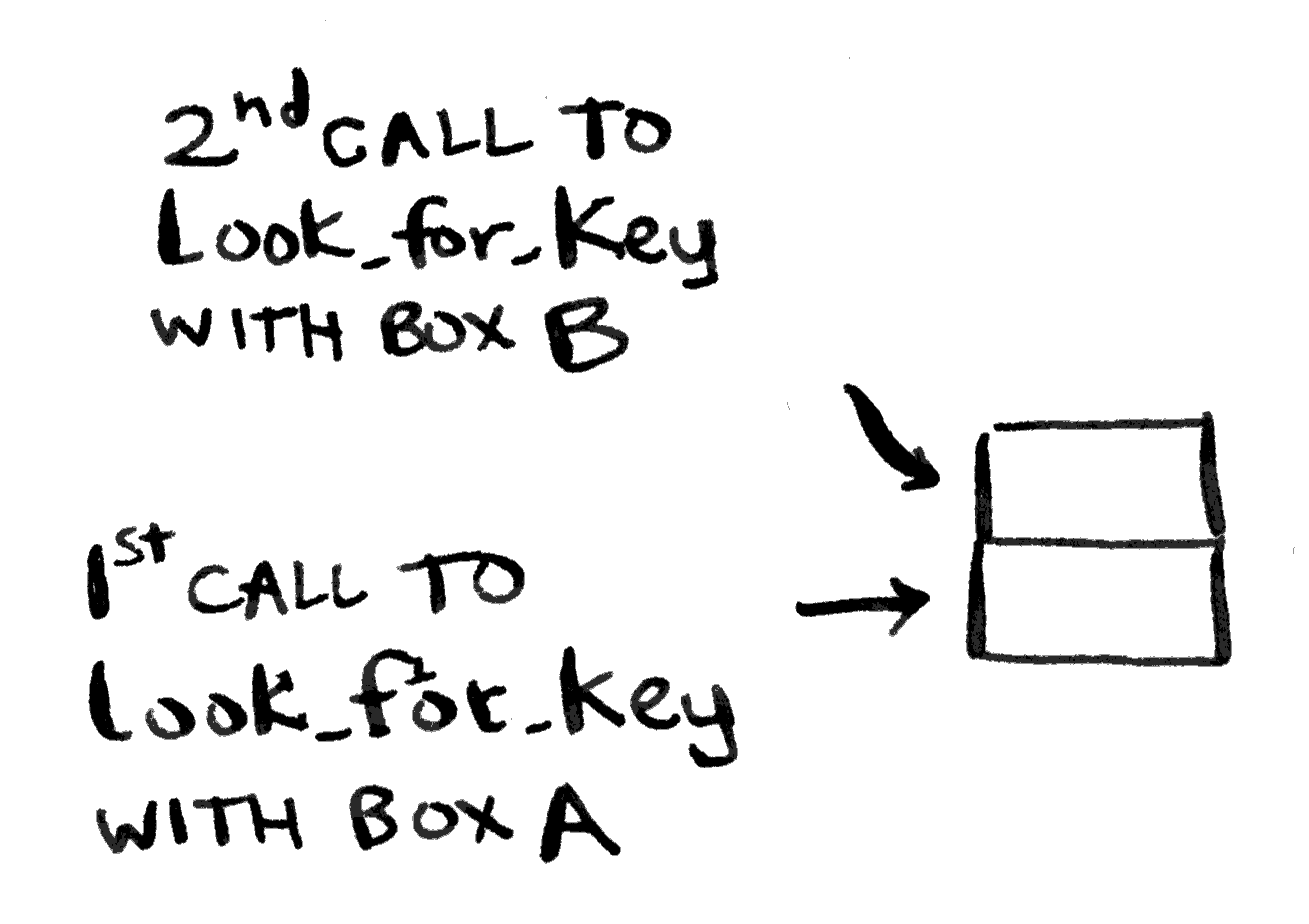 2nd CALL TO
Look_for_Key
WITH BOX B
1st CALL TO
Look_for_key
WITH BOX A